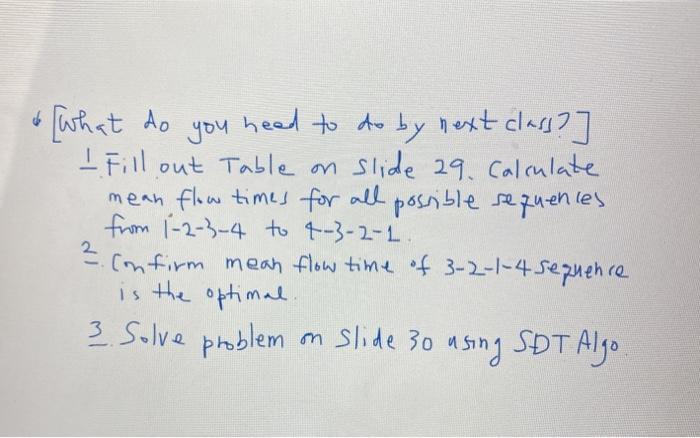 [What do you need to do by next class?]
1. Fill out Table on Slide 29. Calculate
mean flow times for all possible sequences
from 1-2-3-4 to 4-3-2-1.
2. Confirm mean flow time of 3-2-1-4 sequence
is the optimal.
3. Solve problem on Slide 30 using SDT Algo.